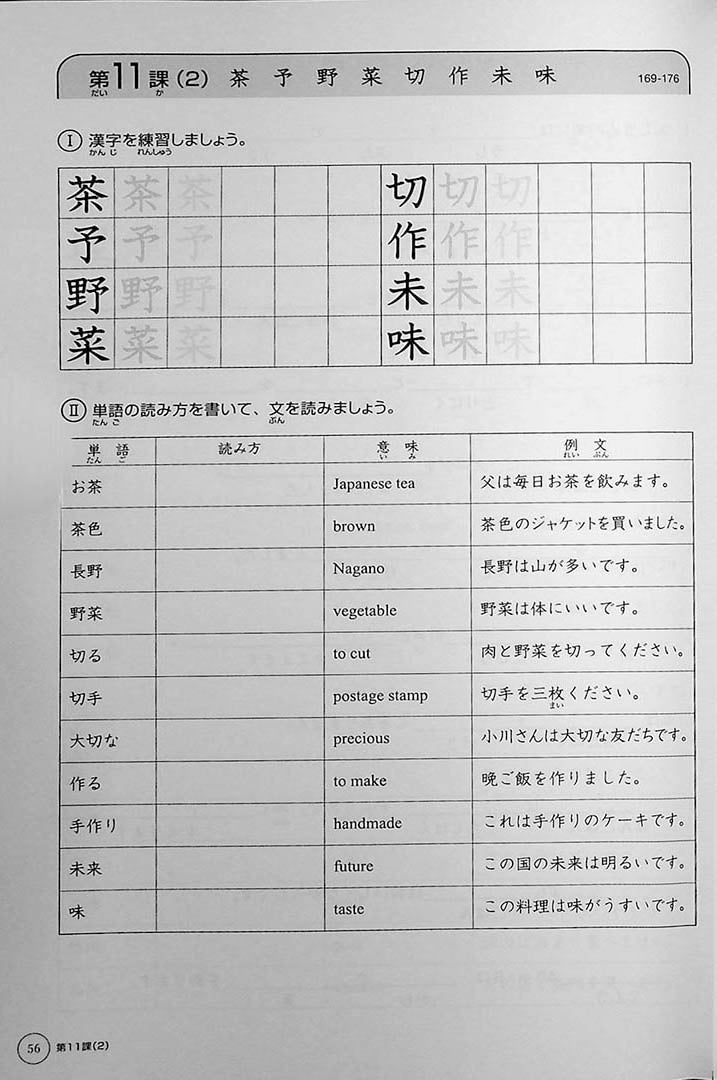 第11課(2) 茶 予 野 菜 切 作 未 味 169-176
だい か
Ⅰ 漢字を練習しましょう。
かんじ れんしゅう
茶 茶 茶 切 切 切
予 予 予 作 作 作
野 野 野 未 未 未
菜 菜 菜 味 味 味
Ⅱ 単語の読み方を書いて、文を読みましょう。
たんご ぶん
単語 読み方 意味 例文
たん ご い み れい ぶん
お茶 Japanese tea 父は毎日お茶を飲みます。
茶色 brown 茶色のジャケットを買いました。
長野 Nagano 長野は山が多いです。
野菜 vegetable 野菜は体にいいです。
切る to cut 肉と野菜を切ってください。
切手 postage stamp 切手を三枚ください。
まい
大切な precious 小川さんは大切な友だちです。
作る to make 晩ご飯を作りました。
手作り handmade これは手作りのケーキです。
未来 future この国の未来は明るいです。
味 taste この料理は味がうすいです。
56 第11課(2)